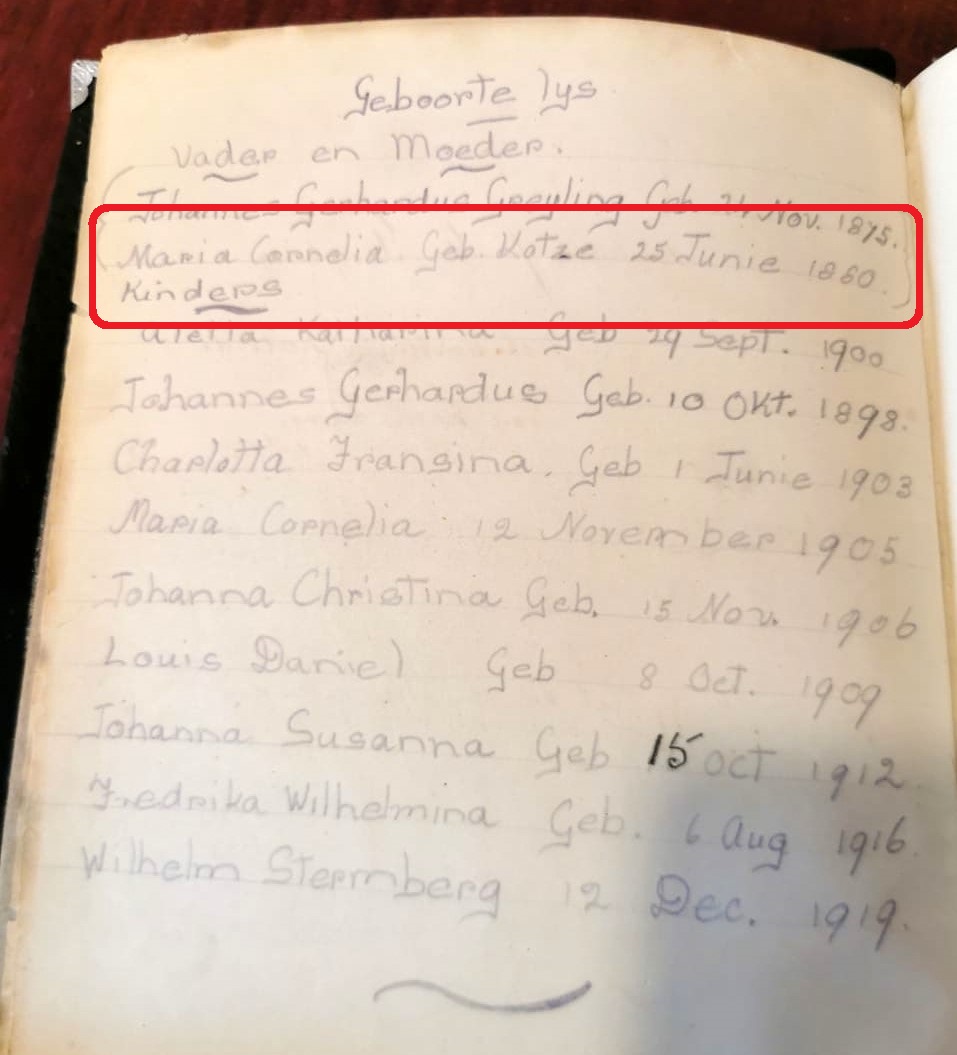 Geboorte lys
Vader en Moeder.
Johannes Gerhardus Greyling Geb. Nov. 1875.
Maria Cornelia Geb. Kotze 25 Junie 1860.
Kinders
Katharina Geb 29 Sept. 1900
Johannes Gerhardus Geb. 10 Okt. 1898.
Charlotta Fransina. Geb 1 Junie 1903
Maria Cornelia 12 November 1905
Johanna Christina Geb. 15 Nov. 1906
Louis Daniel Geb 8 Oct. 1909
Johanna Susanna Geb 15 Oct 1912
Fredrika Wilhelmina Geb. 6 Aug 1916.
Wilhelm Stermberg 12 Dec. 1919.